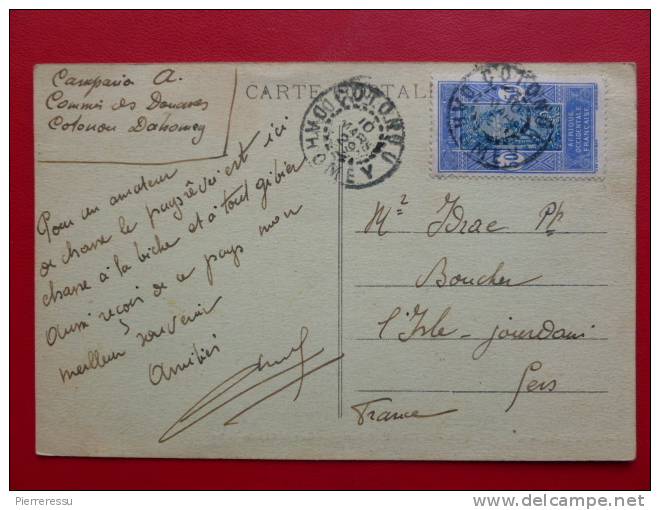 Campana A.
Commis des Douanes
Cotonou Dahomey
CARTE POSTALE
COTONOU
DAHOMEY
10
MARS
COTONOU
50
AFRIQUE
OCCIDENTALE
FRANÇAISE
Pour un amateur
de chasse le pays rêvé est ici
chasse à la biche et à tout gibier
Aussi reçois de ce pays mon
meilleur souvenir
Amitiés
Mr Idrac Ph
Boucher
l'Isle-Jourdain
Gers
France
Pierreressu
delcampe.net